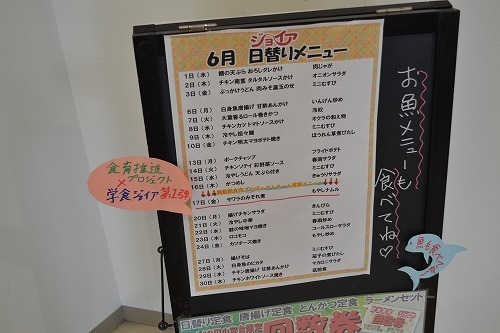 ジョイア
6月 日替りメニュー
1日（水） 鯖の天ぷら おろしダレかけ 肉じゃが
2日（木） チキン南蛮 タルタルソースかけ オニオンサラダ
3日（金） ぶっかけうどん 肉みそ温玉のせ ミニむすび
6日（月） 白身魚唐揚げ 甘酢あんかけ いんげん炒め
7日（火） 大葉香るロール焼きかつ 冷奴
8日（水） チキンカツ トマトソースかけ オクラの和え物
9日（木） 冷やし担々麺 ミニむすび
10日（金） チキン柚太マヨポテト焼き ほうれん草煮びたし
13日（月） ポークチャップ フライドポテト
14日（火） チキンソテイ 和野菜ソース 春雨サラダ
15日（水） 冷やしうどん 天ぷら付き ミニむすび
16日（木） かつめし きゅうりサラダ
17日（金） サワラのみぞれ煮 もやしナムル
20日（月） 揚げチキンサラダ きんぴら
21日（火） 冷やし中華 ミニむすび
22日（水） 鮭の味噌マヨ焼き 春雨炒め
23日（木） ロコモコ コールスローサラダ
24日（金） カツテース焼き もやし炒め
27日（月） 揚げそば ミニむすび
28日（火） 白身魚のピカタ 茄子の煮びたし
29日（水） チキン唐揚げ 甘酢あんかけ マカロニサラダ
30日（木） てりやき 筑前煮
食育推進
プロジェクト
×
学食ジョイア 第1弾
お魚メニューも
食べてね♡
魚も食べて
日替り定食 唐揚げ定食 とんかつ定食 ラーメンセット
回数券